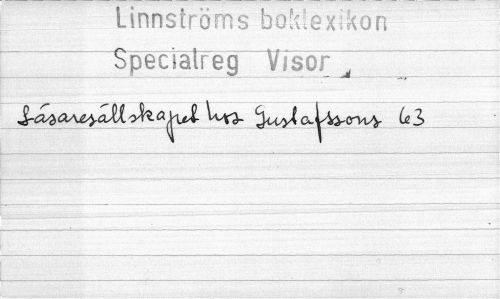 Linnströms boklexikon
Specialreg Visor
Läsaresällskapet hos Gustafssons 63